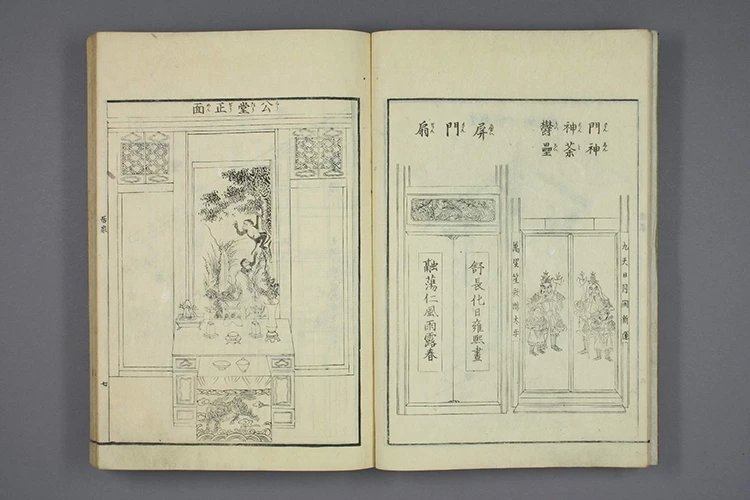 門神
神荼
欝壘
九天日月開新運
萬里笙歌樂太平
屏門扇
舒長化日雍熙晝
融蕩仁風雨露春
公堂正面
居家
七